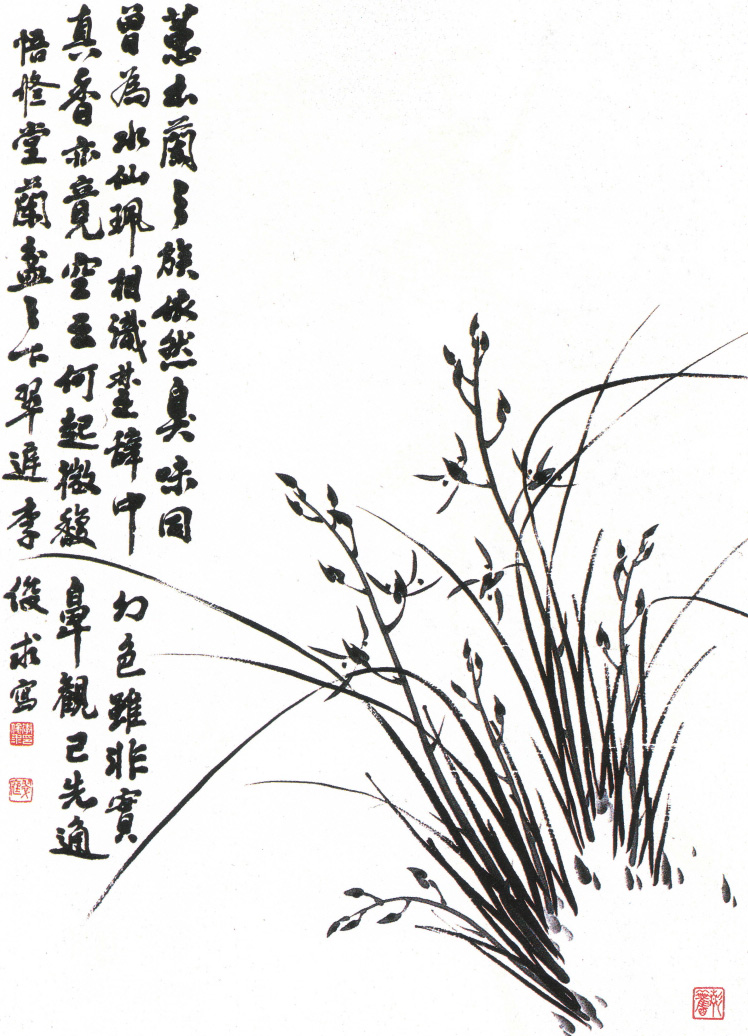 蕙本蘭之族依然臭味同
曾為水仙珮相識楚辭中幻色雖非實
真香亦竟空云何起微馥鼻觀已先通
悟修堂蘭之下翠李俊求寫